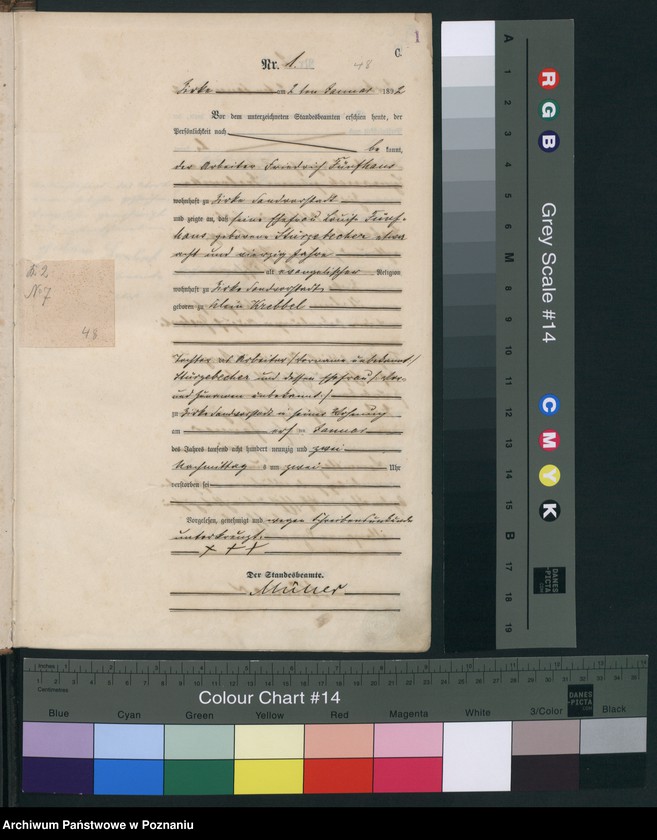 C.
1
Nr. 1.
48
Zirke am 2 ten Januar 1892
Vor dem unterzeichneten Standesbeamten erschien heute, der
Persönlichkeit nach
be kannt,
der Arbeiter Friedrich Fünfhaus
wohnhaft zu Zirke Sandvorstadt
und zeigte an, daß seine Ehefrau Louise Fünf-
haus geborene Stürzebecher, etwa
acht und vierzig Jahre
alt evangelischer Religion
wohnhaft zu Zirke Sandvorstadt,
geboren zu Klein Krebbel
Tochter des Arbeiter /:Vorname unbekannt/
Stürzebecher und dessen Ehefrau /:Vor-
und Zunamen unbekannt:/
zu Zirke Sandvorstadt in seiner Wohnung
am ersten Januar
des Jahres tausend acht hundert neunzig und zwei
Nachmittag s um zwei Uhr
verstorben sei
Vorgelesen, genehmigt und wegen Schreibensunkunde
unterkreuzt.
+ + +
Der Standesbeamte.
Müller
B. 2
N. 7
48
A 1 2 3 4 5 6 M 8 9 10 11 12 13 14 15 B 17 18 19
R G B
Grey Scale #14
C M Y K
DANES-PICTA
Inches
Centimetres
Colour Chart #14
DANES-PICTA
Blue Cyan Green Yellow Red Magenta White 3/Color Black
Archiwum Państwowe w Poznaniu